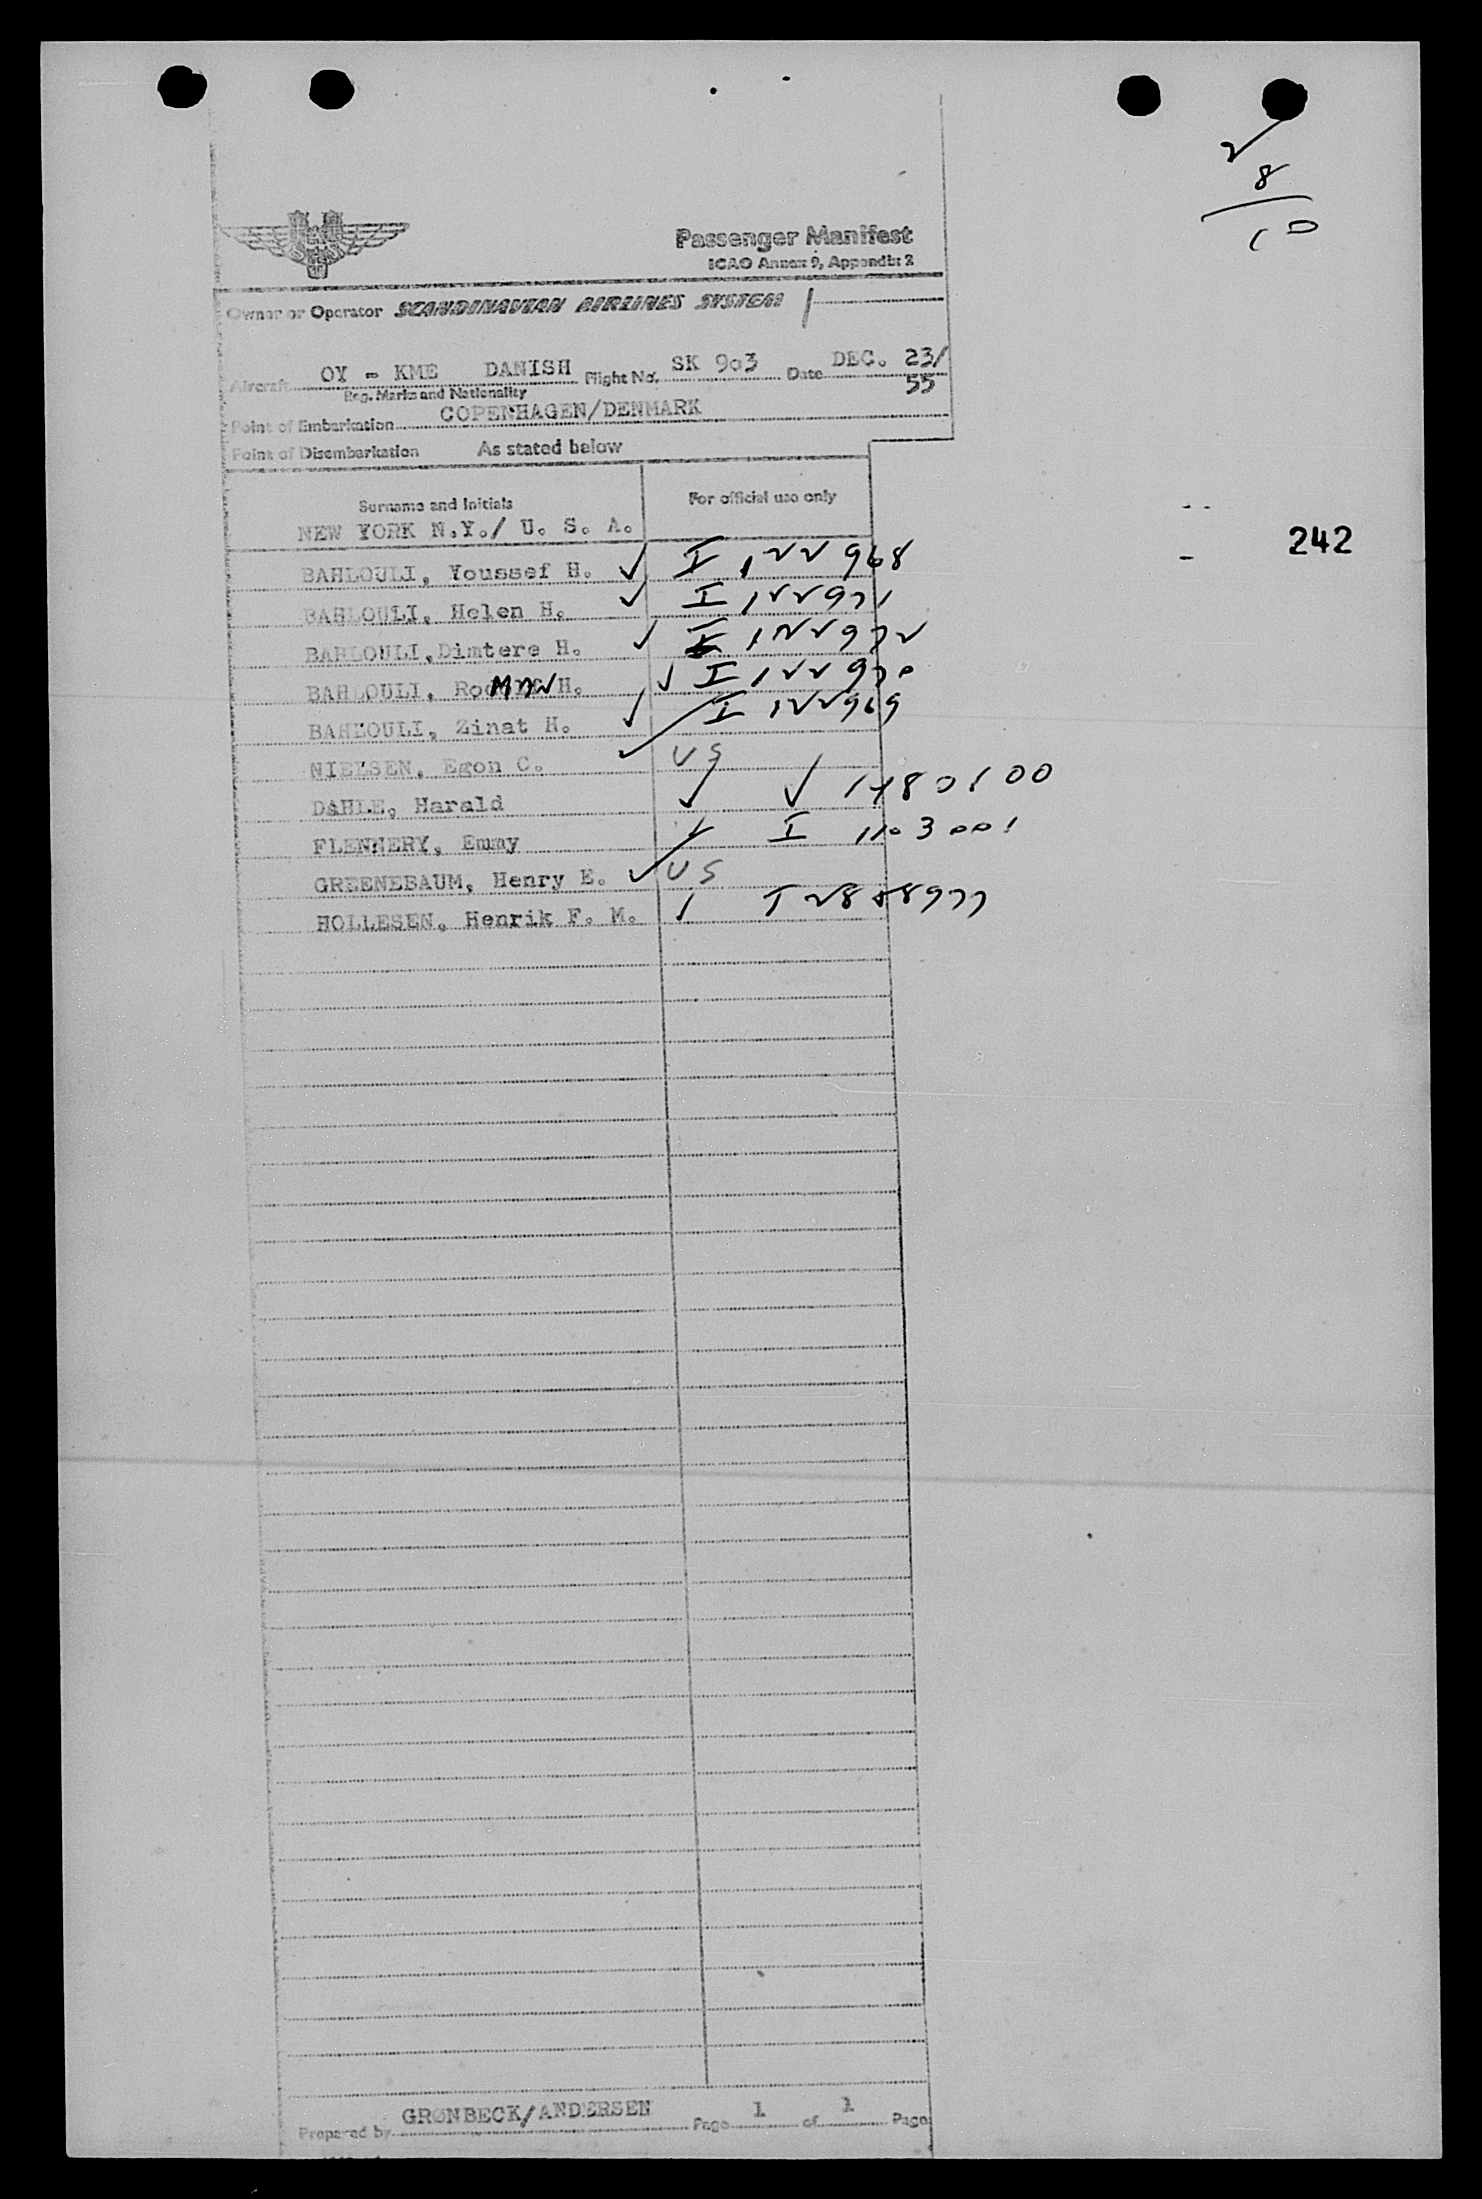 2
8
10
SAS
Passenger Manifest
ICAO Annex 9, Appendix 2
Owner or Operator SCANDINAVIAN AIRLINES SYSTEM
Aircraft OY - KME DANISH Flight No. SK 903 Date DEC. 23/
55
Reg. Marks and Nationality
Point of Embarkation COPENHAGEN/DENMARK
Point of Disembarkation As stated below
Surname and Initials For official use only
NEW YORK N.Y./ U. S. A.
242
BAHLOULI, Youssef H. ✓ I 122968
BAHLOULI, Helen H. ✓ I 122971
BAHLOULI, Dimtere H. ✓ I 122972
BAHLOULI, H. ✓ I 122970
BAHLOULI, Zinat H. ✓ I 122969
NIELSEN, Egon C. ✓ US
DAHLE, Harald ✓ ✓ 1480100
FLENNERY, Emmy ✓ I 1103001
GREENEBAUM, Henry E. ✓ US
HOLLESEN, Henrik F. M. ✓ I
GRØNBECK/ANDERSEN
Prepared by Page 1 of 1 Page